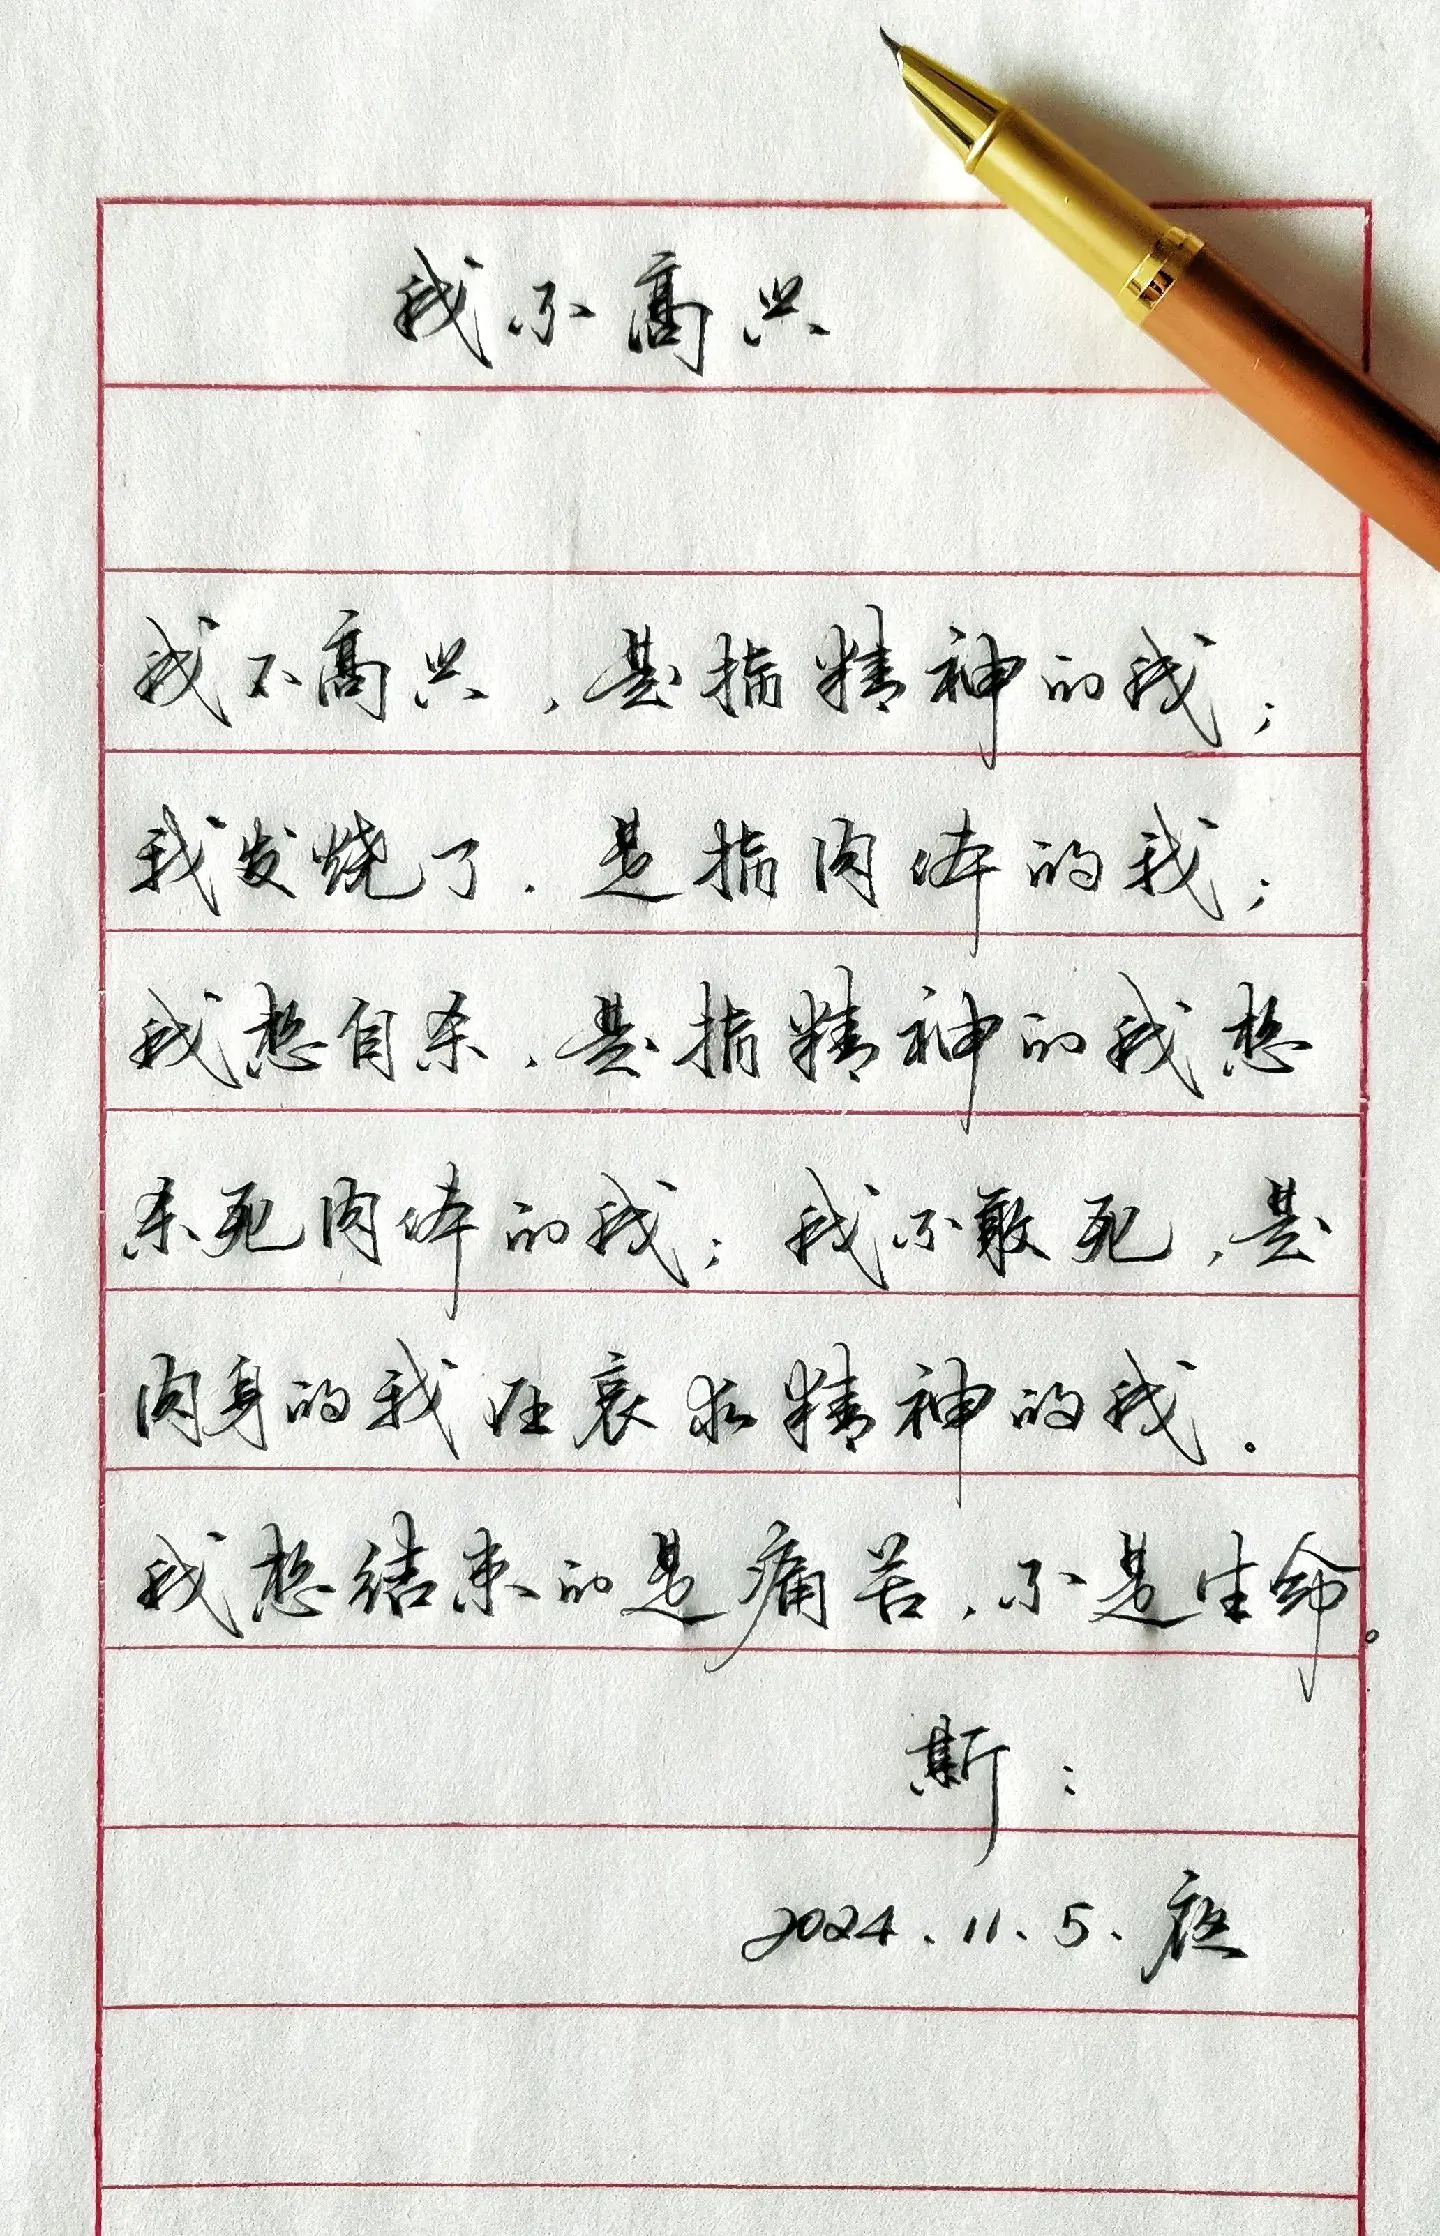 我不高兴
我不高兴，是指精神的我；
我发烧了，是指肉体的我；
我想自杀，是指精神的我想
杀死肉体的我；我不敢死，是
肉身的我在哀求精神的我。
我想结束的是痛苦，不是生命。
斯：
2024.11.5.夜